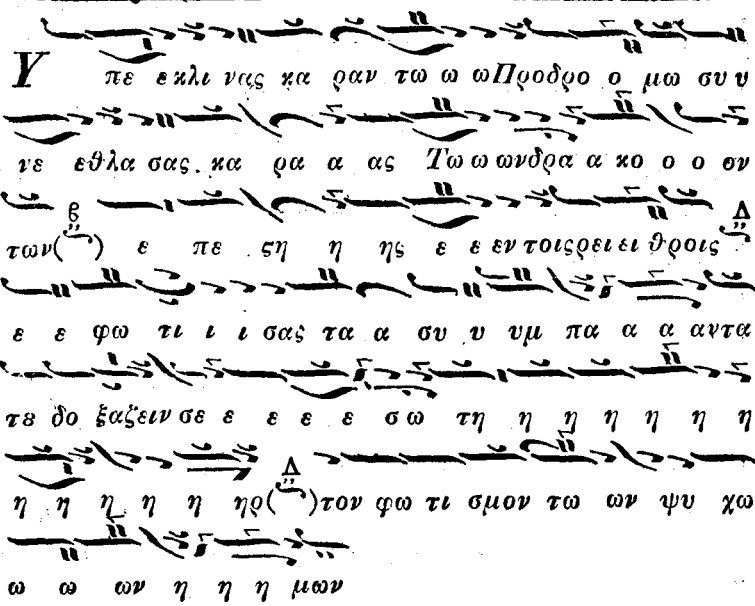 Υ πε εκλι νας κα ραν τω ω ω Προδρο ο μω συ υ
νε εθλα σας κα ρα α ας Τω ω ωνδρα α κο ο ο ον
των( ) ε πε ςη η ης ε ε εν τοιςρει ει ει θροις
ε ε φω τι ι ι σας τα α συ υ υμ πα α α αντα
τε δο ξαζειν σε ε ε ε ε σ ω τη η η η η η η
η η η η η ηρ( )τον φω τι σμον τω ων ψυ χω
ω ω ων η η η μων